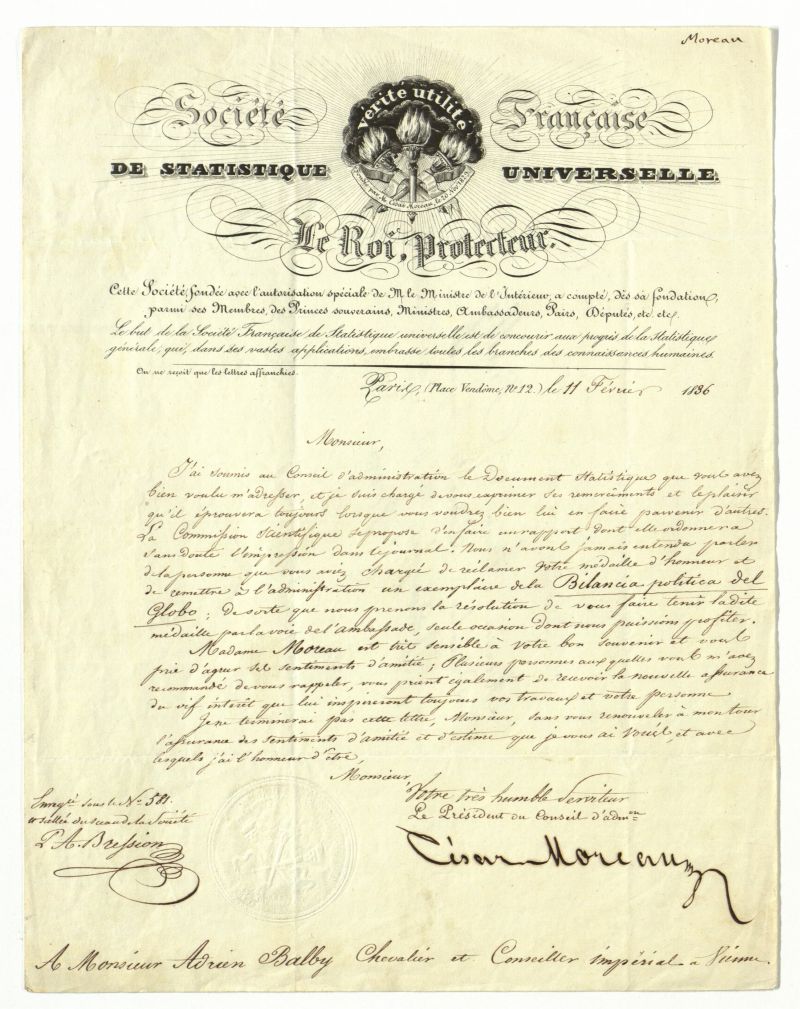 Moreau
vérité utilité
Société Française
DE STATISTIQUE UNIVERSELLE.
Fondée par M. César Moreau, le 20 Nov. 1829
Le Roi, Protecteur.
Cette Société, fondée avec l'autorisation spéciale de M. le Ministre de l'Intérieur, a compté, dès sa fondation,
parmi ses Membres, des Princes souverains, Ministres, Ambassadeurs, Pairs, Députés, etc. etc.
Le but de la Société Française de Statistique universelle est de concourir aux progrès de la Statistique
générale, qui, dans ses vastes applications, embrasse toutes les branches des connaissances humaines.
On ne reçoit que les lettres affranchies.
Paris, (Place Vendôme, No. 12.) le 11 Février 1836
Monsieur,
J'ai soumis au Conseil d'administration le Document Statistique que vous avez
bien voulu m'adresser, et je suis chargé de vous exprimer ses remerciments et le plaisir
qu'il éprouvera toujours lorsque vous voudrez bien lui en faire parvenir d'autres.
La Commission Scientifique se propose d'en faire un rapport, dont elle ordonnera
sans doute l'impression dans le journal. Nous n'avons jamais entendu parler
de la personne que vous aviez chargé de réclamer votre médaille d'honneur et
de remettre à l'administration un exemplaire de la Bilancia politica del
Globo; de sorte que nous prenons la résolution de vous faire tenir la dite
médaille par la voie de l'ambassade, seule occasion dont nous puissions profiter.
Madame Moreau est très sensible à votre bon souvenir et vous
prie d'agréer ses sentiments d'amitié; Plusieurs personnes aux quelles vous m'avez
recommandé de vous rappeler, vous prient également de recevoir la nouvelle assurance
du vif intérêt que lui inspireront toujours vos travaux et votre personne
Je ne terminerai pas cette lettre, Monsieur, sans vous renouveler à mon tour
l'assurance des sentiments d'amitié et d'estime que je vous ai voués, et avec
lesquels j'ai l'honneur d'être,
Monsieur,
Votre très humble Serviteur
Le Président du Conseil d'admon
César Moreau
Enregé sous le No. 581
et scellée du sceau de la Société
A. Bression
A Monsieur Adrien Balby Chevalier et Conseiller impérial a Vienne.